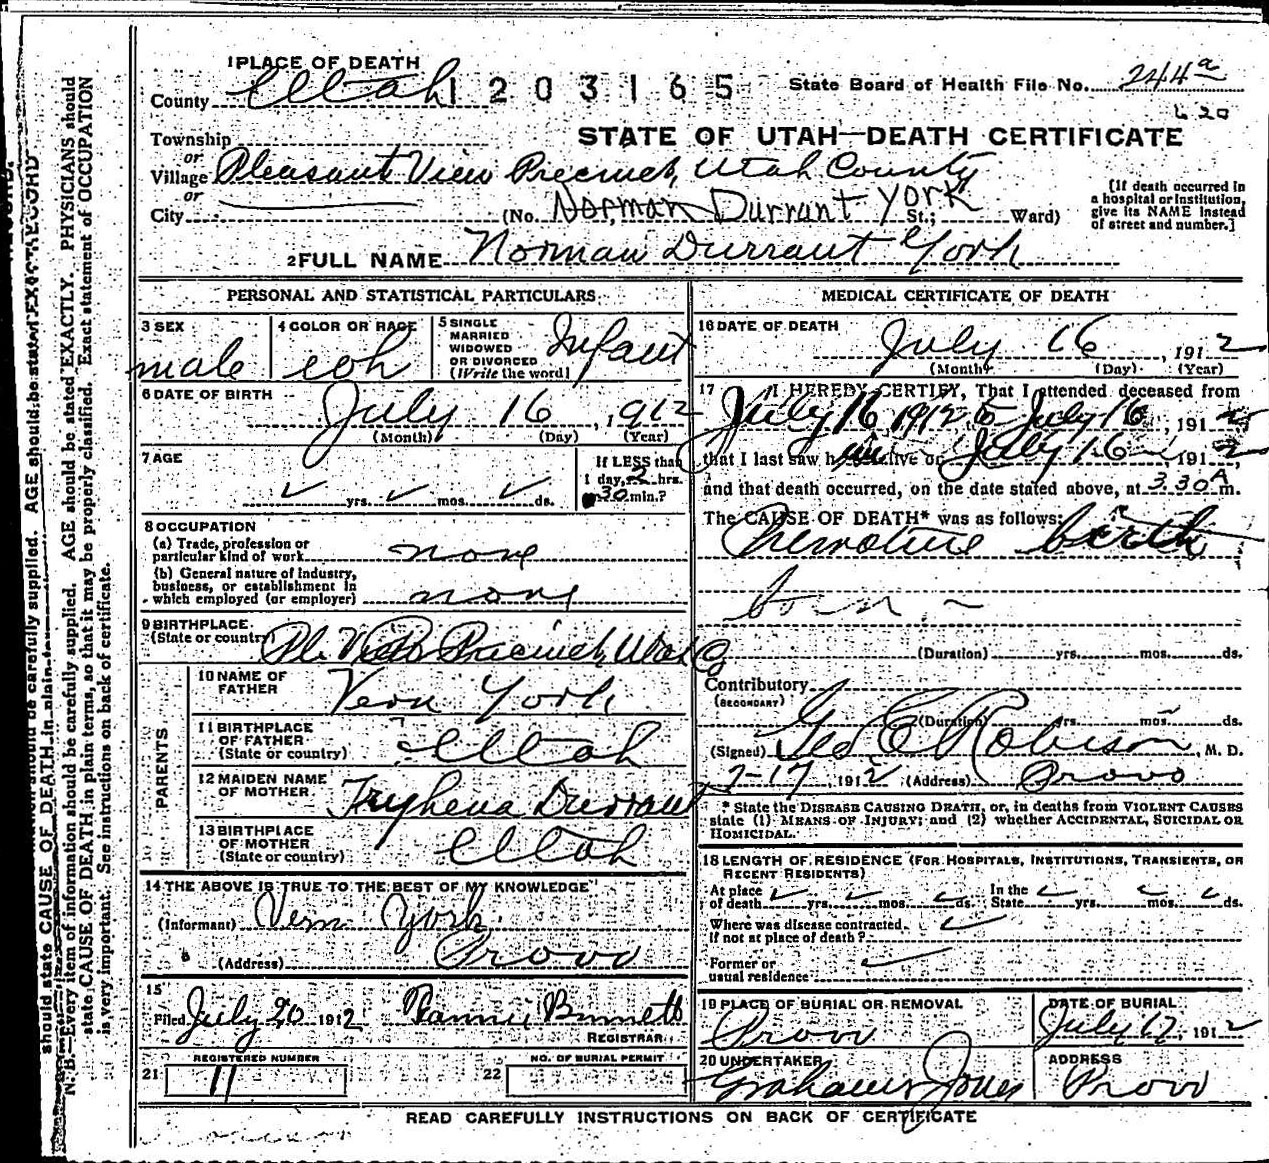 1 PLACE OF DEATH
County Utah 1203165 State Board of Health File No. 244a
620
Township
or
STATE OF UTAH—DEATH CERTIFICATE
Village Pleasant View Precinct, Utah County
or
City (No. Norman Durrant York St.; Ward)
[If death occurred in
a hospital or institution,
give its NAME instead
of street and number.]
2 FULL NAME Norman Durrant York
PERSONAL AND STATISTICAL PARTICULARS.
3 SEX
male
4 COLOR OR RACE
5 SINGLE
MARRIED
WIDOWED
OR DIVORCED
(Write the word)
Infant
6 DATE OF BIRTH
July 16, 1912
(Month) (Day) (Year)
7 AGE
yrs. mos. ds.
If LESS than
1 day, 2 hrs.
or 30 min.?
8 OCCUPATION
(a) Trade, profession or
particular kind of work none
(b) General nature of industry,
business, or establishment in
which employed (or employer) none
9 BIRTHPLACE
(State or country) Precinct, Utah Co
PARENTS
10 NAME OF
FATHER Vern York
11 BIRTHPLACE
OF FATHER
(State or country) Utah
12 MAIDEN NAME
OF MOTHER Tryphena Durrant
13 BIRTHPLACE
OF MOTHER
(State or country) Utah
14 THE ABOVE IS TRUE TO THE BEST OF MY KNOWLEDGE
(Informant) Vern York
(Address) Provo
15
Filed July 20 1912 Fannie Bennett
REGISTRAR
REGISTERED NUMBER
21 11
NO. OF BURIAL PERMIT
22
MEDICAL CERTIFICATE OF DEATH
16 DATE OF DEATH
July 16, 1912
(Month) (Day) (Year)
17 I HEREBY CERTIFY, That I attended deceased from
July 16 1912 to July 16, 1912
that I last saw him alive on July 16, 1912,
and that death occurred, on the date stated above, at 3 30 A m.
The CAUSE OF DEATH* was as follows:
Premature birth
born
(Duration) yrs. mos. ds.
Contributory
(SECONDARY)
(Duration) yrs. mos. ds.
(Signed) Geo E Robison, M. D.
7-17, 1912 (Address) Provo
* State the DISEASE CAUSING DEATH, or, in deaths from VIOLENT CAUSES
state (1) MEANS OF INJURY; and (2) whether ACCIDENTAL, SUICIDAL OR
HOMICIDAL.
18 LENGTH OF RESIDENCE (FOR HOSPITALS, INSTITUTIONS, TRANSIENTS, OR
RECENT RESIDENTS)
At place
of death yrs. mos. ds. In the
State yrs. mos. ds.
Where was disease contracted.
If not at place of death?
Former or
usual residence
19 PLACE OF BURIAL OR REMOVAL
Provo
DATE OF BURIAL
July 17, 1912
20 UNDERTAKER
Grahams Jones
ADDRESS
Provo
READ CAREFULLY INSTRUCTIONS ON BACK OF CERTIFICATE
N. B.—Every item of information should be carefully supplied. AGE should be stated EXACTLY. PHYSICIANS should
state CAUSE OF DEATH in plain terms, so that it may be properly classified. Exact statement of OCCUPATION
is very important. See instructions on back of certificate.